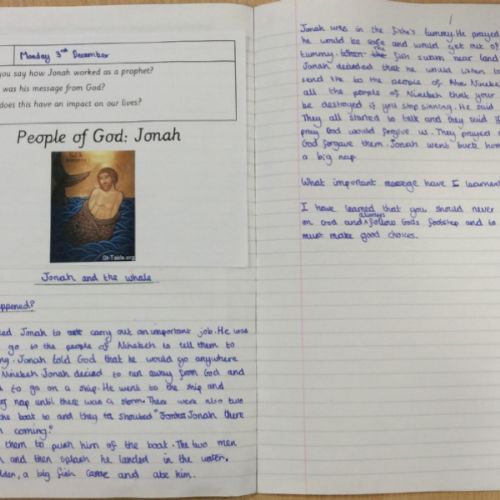 Monday 3rd December
you say how Jonah worked as a prophet?
was his message from God?
does this have an impact on our lives?
People of God: Jonah
St-Takla.org
Jonah and the whale
appened?
ed Jonah to carry out an important job. He was
go to the people of Ninebeth to tell them to
ng. Jonah told God that he would go anywhere
Ninebeth Jonah decied to run away from God and
d to go on a ship. He went to the ship and
nap until there was a storm. There were also two
the boat to and they shouted "Jonah there
coming."
them to push him of the boat. The two men
h and then splash he landed in the water.
dden, a big fish came and ate him.
Jonah was in the fishe's tummy. He prayed
he would be safe and would get out of
tummy. the fish swam near land
Jonah decided that he would listen to
send the to the people of the Ninebe
all the people of Ninebeth that your
be destroyed if you stop sinning. He said
They all started to talk and they said if
pray God would forgive us. They prayed
God forgave them. Jonah went back hom
a big nap.
What important message have I learnen
I have learned that you should never
on God and always follow Gods footstep and to
must make good choices.